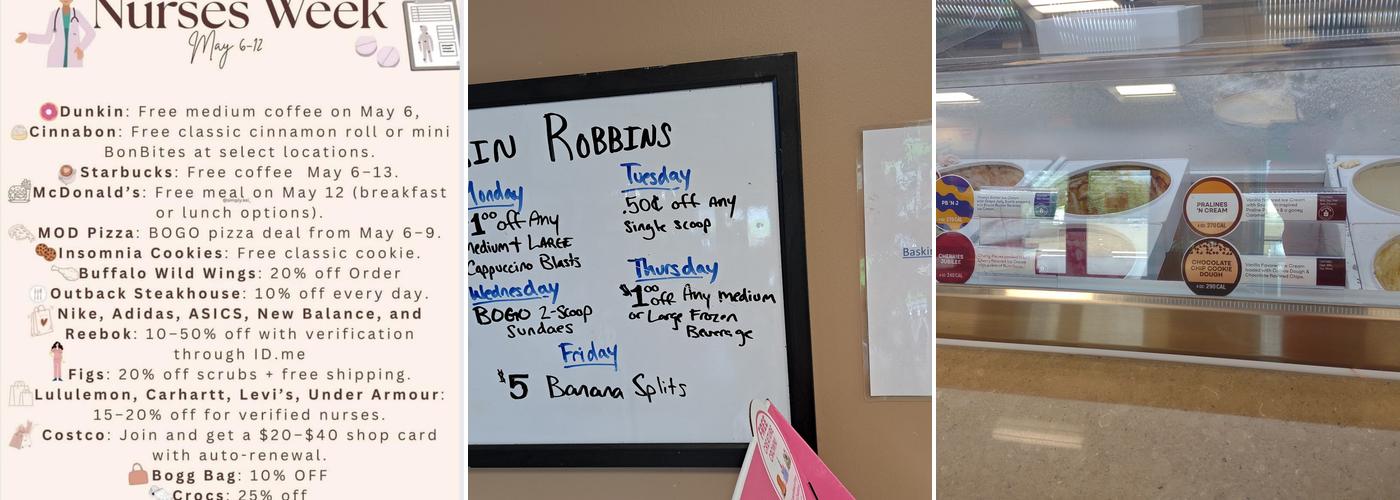 Nurses Week
May 6-12
Dunkin: Free medium coffee on May 6,
Cinnabon: Free classic cinnamon roll or mini
BonBites at select locations.
Starbucks: Free coffee May 6-13.
McDonald's: Free meal on May 12 (breakfast
or lunch options).
MOD Pizza: BOGO pizza deal from May 6-9.
Insomnia Cookies: Free classic cookie.
Buffalo Wild Wings: 20% off Order
Outback Steakhouse: 10% off every day.
Nike, Adidas, ASICS, New Balance, and
Reebok: 10-50% off with verification
through ID.me
Figs: 20% off scrubs + free shipping.
Lululemon, Carhartt, Levi's, Under Armour:
15-20% off for verified nurses.
Costco: Join and get a $20-$40 shop card
with auto-renewal.
Bogg Bag: 10% OFF
Crocs: 25% off
IN ROBBINS
Monday
1⁰⁰ off Any
Medium + LARGE
Cappuccino Blasts
Tuesday
.50¢ off Any
Single scoop
Wednesday
BOGO 2-Scoop
Sundaes
Thursday
$1⁰⁰ off Any medium
or Large Frozen
Beverage
Friday
$5 Banana Splits
FREE
Baskin
PB 'N J
270 CAL
CHERRIES
JUBILEE
240 CAL
PRALINES
'N CREAM
4 oz 270 CAL
CHOCOLATE
CHIP COOKIE
DOUGH
4 oz 290 CAL